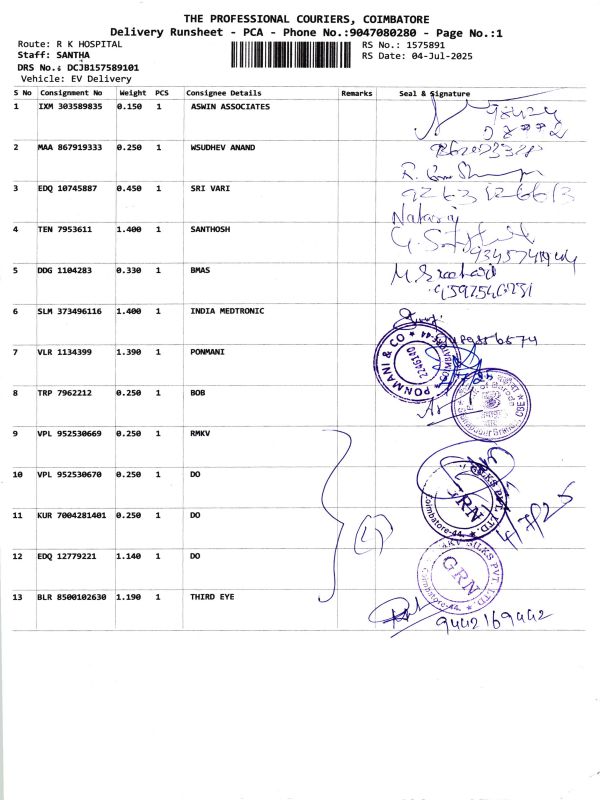 THE PROFESSIONAL COURIERS, COIMBATORE
Delivery Runsheet - PCA - Phone No.:9047080280 - Page No.:1
Route: R K HOSPITAL
RS No.: 1575891
Staff: SANTHA
RS Date: 04-Jul-2025
DRS No.: DCJB157589101
Vehicle: EV Delivery
S No Consignment No Weight PCS Consignee Details Remarks Seal & Signature
1 IXM 303589835 0.150 1 ASWIN ASSOCIATES
2 MAA 867919333 0.250 1 WSUDHEV ANAND
3 EDQ 10745887 0.450 1 SRI VARI
Nataraj
4 TEN 7953611 1.400 1 SANTHOSH
5 DDG 1104283 0.330 1 BMAS
6 SLM 373496116 1.400 1 INDIA MEDTRONIC
7 VLR 1134399 1.390 1 PONMANI
PONMANI & CO
2246140
8 TRP 7962212 0.250 1 BOB
9 VPL 952530669 0.250 1 RMKV
10 VPL 952530670 0.250 1 DO
SILKS PVT. LTD.
Coimbatore-44.
11 KUR 7004281401 0.250 1 DO
(4)
4/7/25
12 EDQ 12779221 1.140 1 DO
SILKS PVT. LTD.
GRN
Coimbatore-44.
13 BLR 8500102630 1.190 1 THIRD EYE
9442169442